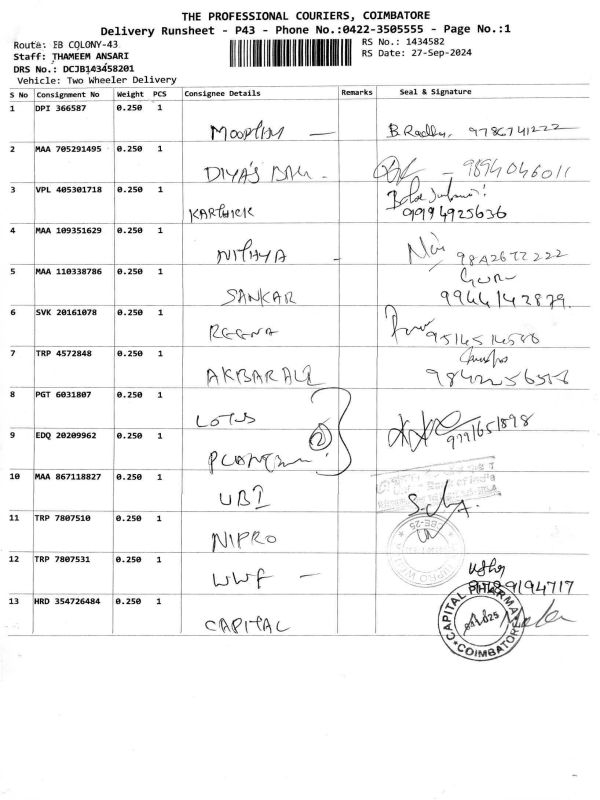 THE PROFESSIONAL COURIERS, COIMBATORE
Delivery Runsheet - P43 - Phone No.:0422-3505555 - Page No.:1
Route: EB COLONY-43
RS No.: 1434582
Staff: THAMEEM ANSARI
RS Date: 27-Sep-2024
DRS No.: DCJB143458201
Vehicle: Two Wheeler Delivery
S No Consignment No Weight PCS Consignee Details Remarks Seal & Signature
1 DPI 366587 0.250 1
MOOPLIM — B. Radha, 9786741222
2 MAA 705291495 0.250 1
DIYA'S - 9894046011
3 VPL 405301718 0.250 1
KARTHICK 9994925636
4 MAA 109351629 0.250 1
NITHYA —
5 MAA 110338786 0.250 1
Guru
SANKAR 9944142879.
6 SVK 20161078 0.250 1
REENA
7 TRP 4572848 0.250 1
AKBAR ALI
8 PGT 6031807 0.250 1
LOTUS
9 EDQ 20209962 0.250 1
②
10 MAA 867118827 0.250 1
UBI
11 TRP 7807510 0.250 1
NIPRO
12 TRP 7807531 0.250 1
WWF —
13 HRD 354726484 0.250 1
CAPITAL
CAPITAL PHARMA
COIMBATORE